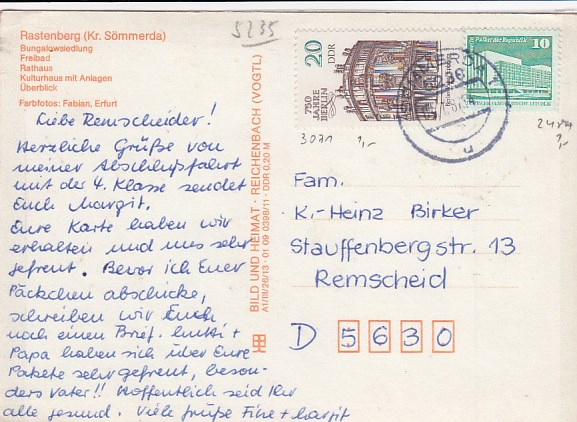 5235
Rastenberg (Kr. Sömmerda)
Bungalowsiedlung
Freibad
Rathaus
Kulturhaus mit Anlagen
Überblick
Farbfotos: Fabian, Erfurt
Liebe Remscheider!
Herzliche Grüße von
meiner Abschlußfahrt
mit der 4. Klasse sendet
Euch Margit.
Eure Karte haben wir
erhalten und uns sehr
gefreut. Bevor ich Euer
Päckchen abschicke,
schreiben wir Euch
noch einen Brief. Mutti +
Papa haben sich über Eure
Pakete sehr gefreut, beson-
ders Vater!! Hoffentlich seid Ihr
alle gesund. Viele Grüße Fine + Margit
BILD UND HEIMAT · REICHENBACH (VOGTL)
A1/III/26/13 · 01 09 0398/11 · DDR 0,20 M
20
DDR
750
JAHRE
BERLIN
Palast der Republik
10
DEUTSCHE DEMOKRATISCHE REPUBLIK
3071
1,-
2484
1,-
Fam.
K.-Heinz Birker
Stauffenbergstr. 13
Remscheid
D 5630